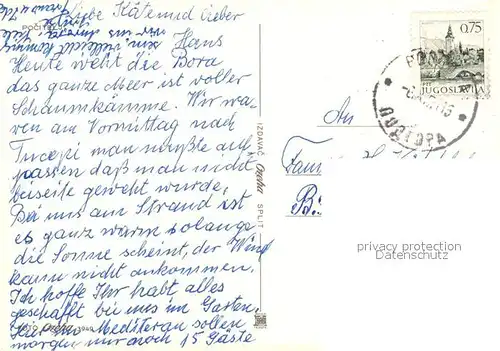 Liebe Käte und lieber
Hans
Heute weht die Bora
das ganze Meer ist voller
Schaumkämme. Wir wa-
ren am Vormittag nach
Tucepi man mußte auf-
passen daß man nicht
beiseite geweht wurde,
Bei uns am Strand ist
es ganz warm solange
die Sonne scheint, der Wind
kann nicht ankommen.
Ich hoffe Ihr habt alles
geschafft bei uns im Garten.
Hier im Mediteran sollen
morgen nur noch 15 Gäste
POČITELJ
IZDAVAČ SPLIT
0,75
JUGOSLAVIJA
ПОДГОРА
An
Fam
B
privacy protection
Datenschutz